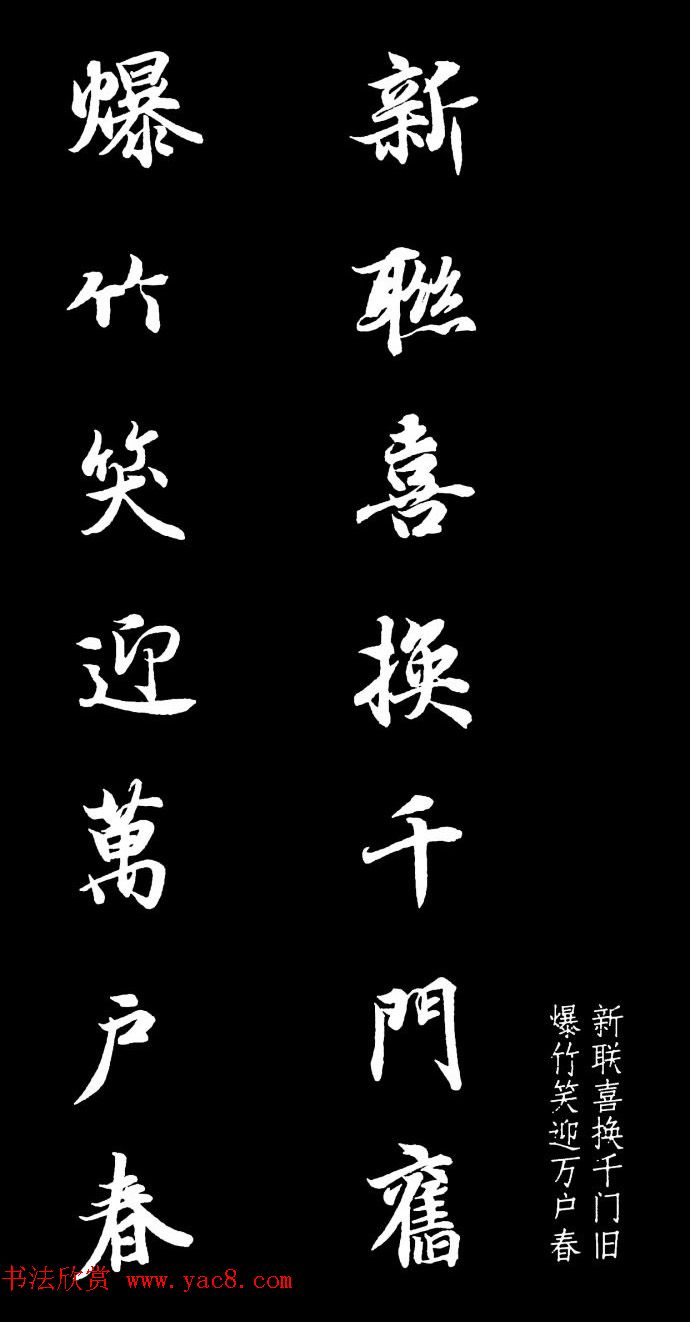 新聯喜換千門舊
爆竹笑迎萬户春
新联喜换千门旧
爆竹笑迎万户春
书法欣赏 www.yac8.com